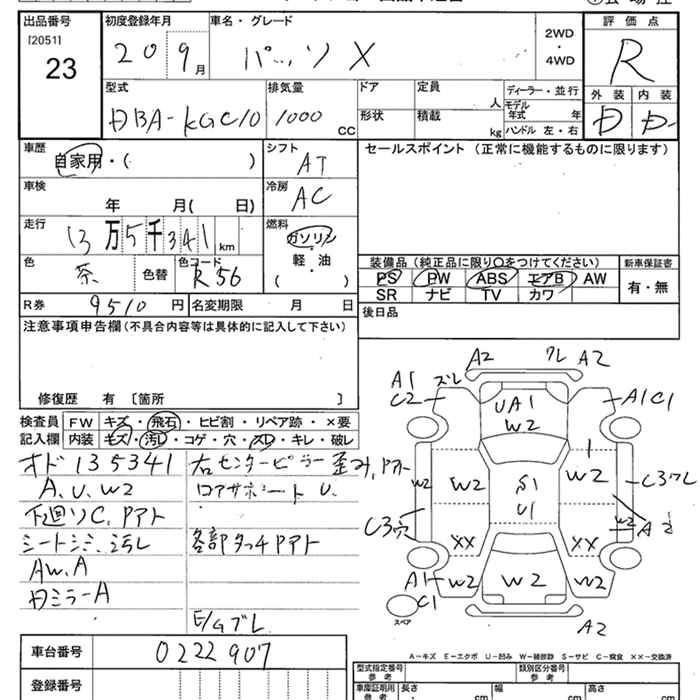 出品番号 初度登録年月 車名・グレード 2WD・4WD 評価点
[2051] 23 20 9月 パッソ X R
外装 内装
D D-
型式 排気量 ドア 定員 人 ディーラー・並行
DBA-KGC10 1000 CC 形状 積載 kg モデル年式 年
ハンドル 左・右
車歴 シフト セールスポイント (正常に機能するものに限ります)
自家用・( ) AT
車検 冷房
年 月( 日) AC
走行 燃料
13万5千341 km ガソリン・軽・油 ( )
色 色替 色コード 装備品 (純正品に限り〇をつけてください) 新車保証書
茶 R56 PS PW ABS エアB AW 有・無
SR ナビ TV カワ
R券 9510円 名変期限 月 日 後日品
注意事項申告欄 (不具合内容等は具体的に記入して下さい)
修復歴 有 [箇所 ]
検査員 FW キズ・飛石・ヒビ割・リペア跡・×要
記入欄 内装 キズ・汚レ・コゲ・穴・スレ・キレ・破レ
オド 135341 右センターピラー歪み,Pアト
A.U.W2
下廻りC.Pアト
シートシミ.汚レ 各部タッチPアト
AW.A
ミラーA
E/Gブレ
A2 ワレ A2
A1 ズレ
C2 A1C1
UA1
W2
W2 W2 S1 W2 C3ワレ
U1 W2
C3穴 A2
XX XX
A1 W2 W2 W2
C1
スペア
A2
A-キズ E-エクボ U-凹み W-補修跡 S-サビ C-腐食 XX-交換済
車台番号 0222907 型式指定番号 参考 類別区分番号 参考
登録番号 車庫証明用 参考 長さ cm 幅 cm 高さ cm